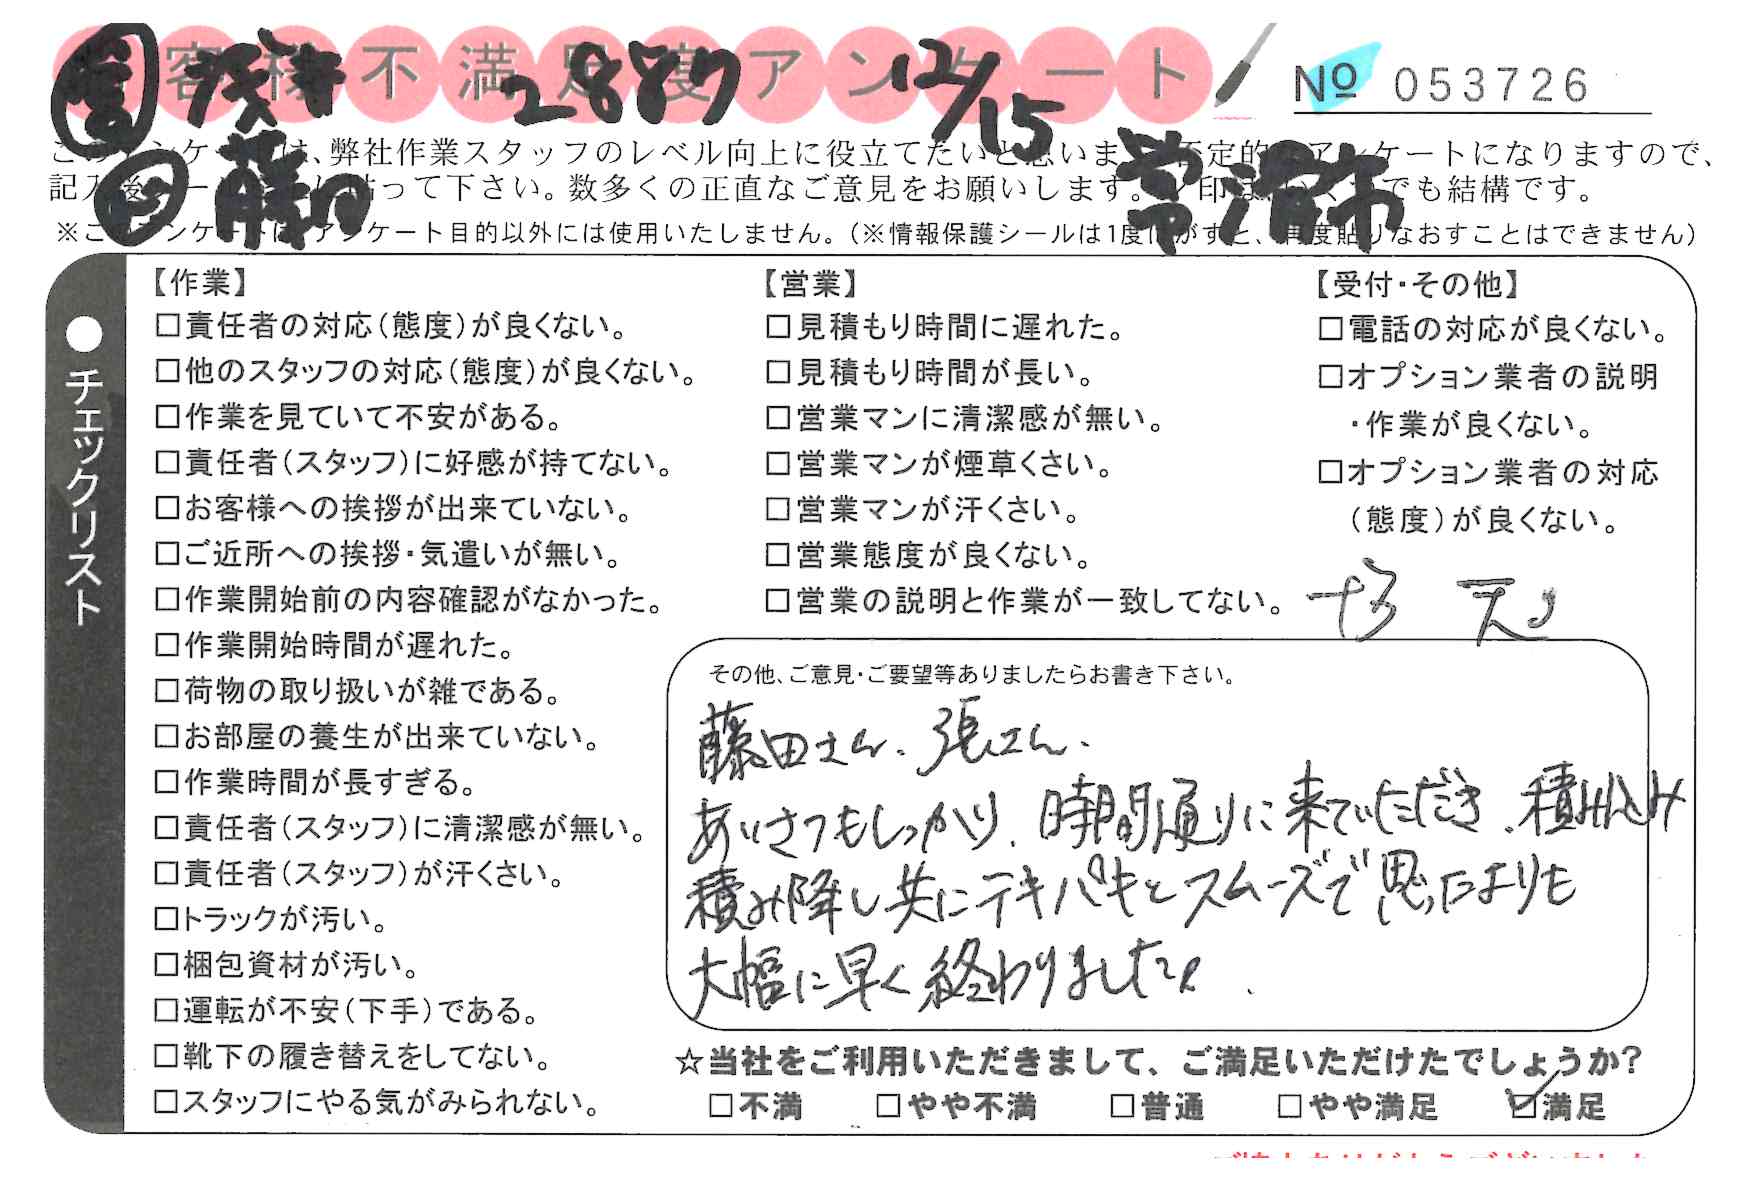 お客様不満足度アンケート
営 浅井 2887 12/15
No 053726
作 藤田 常滑市
このアンケートは、弊社作業スタッフのレベル向上に役立てたいと思います。否定的なアンケートになりますので、
記入後シールを上に貼って下さい。数多くの正直なご意見をお願いします。レ印はいくつでも結構です。
※このアンケートは、アンケート目的以外には使用いたしません。(※情報保護シールは1度はがすと、再度貼りなおすことはできません)
●チェックリスト
【作業】
□責任者の対応(態度)が良くない。
□他のスタッフの対応(態度)が良くない。
□作業を見ていて不安がある。
□責任者(スタッフ)に好感が持てない。
□お客様への挨拶が出来ていない。
□ご近所への挨拶・気遣いが無い。
□作業開始前の内容確認がなかった。
□作業開始時間が遅れた。
□荷物の取り扱いが雑である。
□お部屋の養生が出来ていない。
□作業時間が長すぎる。
□責任者(スタッフ)に清潔感が無い。
□責任者(スタッフ)が汗くさい。
□トラックが汚い。
□梱包資材が汚い。
□運転が不安(下手)である。
□靴下の履き替えをしてない。
□スタッフにやる気がみられない。
【営業】
□見積もり時間に遅れた。
□見積もり時間が長い。
□営業マンに清潔感が無い。
□営業マンが煙草くさい。
□営業マンが汗くさい。
□営業態度が良くない。
□営業の説明と作業が一致してない。
【受付・その他】
□電話の対応が良くない。
□オプション業者の説明
・作業が良くない。
□オプション業者の対応
(態度)が良くない。
その他、ご意見・ご要望等ありましたらお書き下さい。
藤田さん、張さん、
あいさつもしっかり、時間通りに来ていただき、積み込み
積み降し共にテキパキとスムーズで思ったよりも
大幅に早く終わりました。
☆当社をご利用いただきまして、ご満足いただけたでしょうか?
□不満 □やや不満 □普通 □やや満足 ☑満足